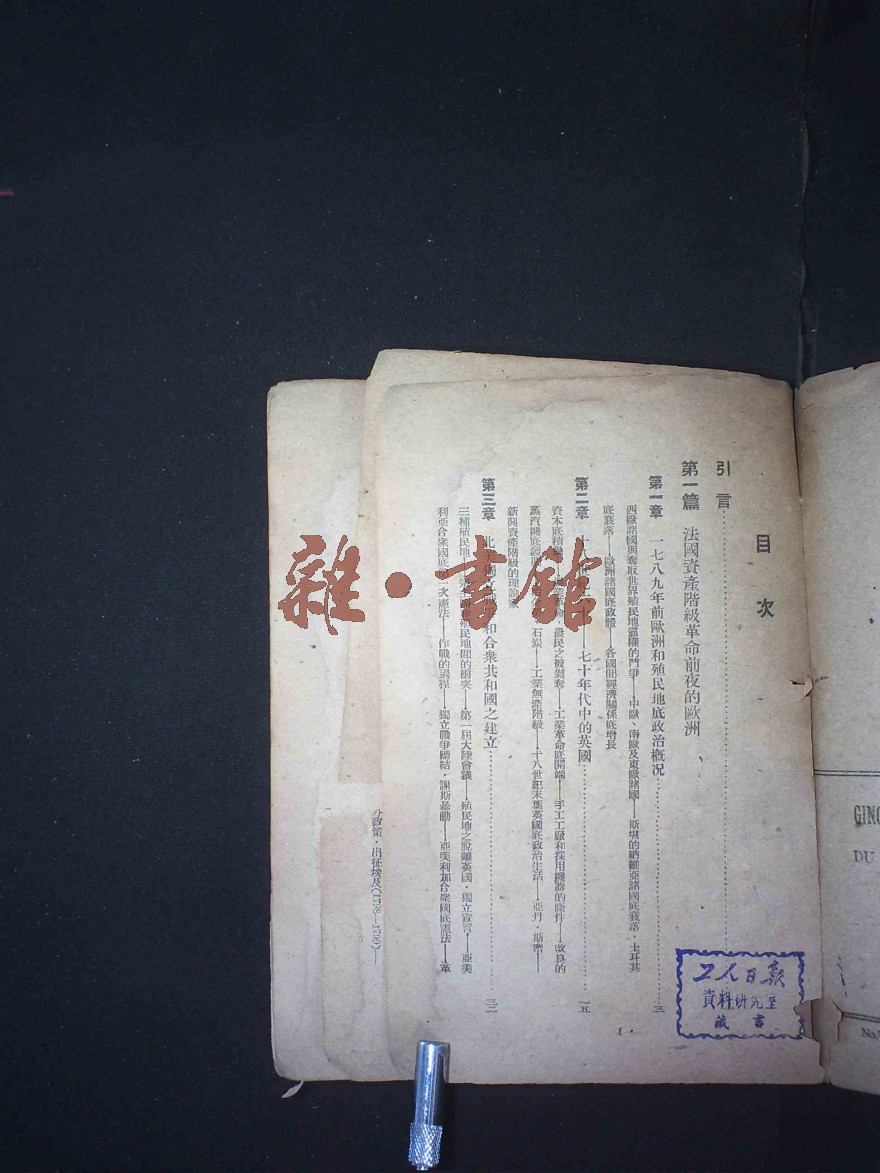 目次
引言
第一篇 法國資產階級革命前夜的歐洲
第一章 一七八九年前歐洲和殖民地底政治概況 三
西歐諸國與奪取世界殖民地霸權的鬥爭——中歐、南歐及東歐諸國——斯堪的納維亞諸國底衰落・土耳其
底衰落——歐洲諸國底政體——各國間經濟關係底增長
第二章 十八世紀 十——七十年代中的英國 一五
資本底積 農民之被剝奪——工業革命底開端——手工工廠和採用機器的條件——改良的
蒸汽機底 石炭——工業無產階級——十八世紀末葉英國底政治生活——亞丹・斯密——
新興資產階級的理論家
第三章 北美獨立 和合衆共和國之建立 三二
三種殖民地 殖民地間的衝突——第一屆大陸會議——殖民地之脫離英國・獨立宣言・——亞美
利亞合衆國底第一次憲法——作戰的過程——獨立戰爭總結・謝斯暴動——亞美利加合衆國底憲法——革
政策・出征埃及(1798—1799)——
雜・書館
工人日報
資料研究室
藏書
GINO
DU
No.